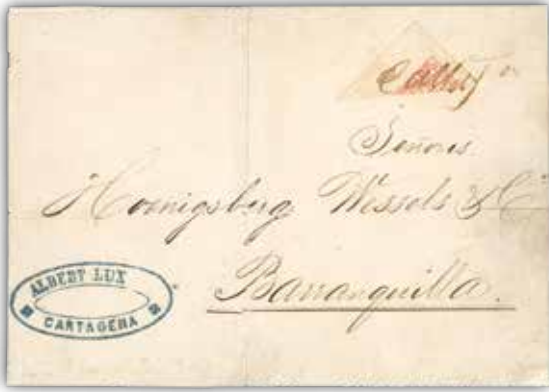 Señores
Hoenigsberg Wessels & Cº
Barranquilla.
ALBERT LUX
CARTAGENA